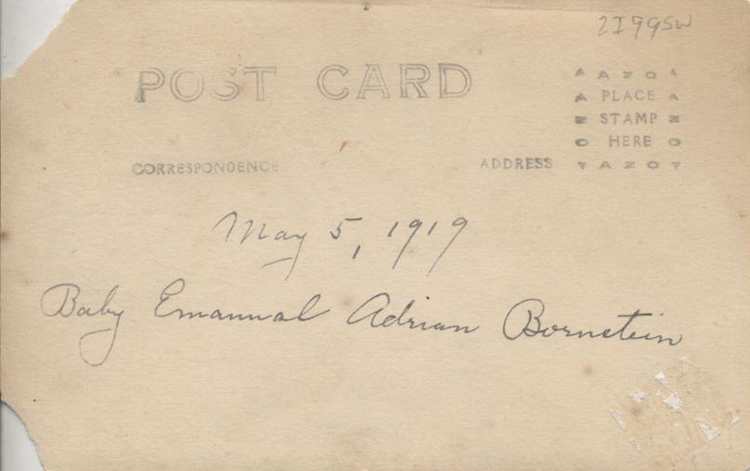 2I99SW
POST CARD
AZO
PLACE
STAMP
HERE
AZO
CORRESPONDENCE
ADDRESS
May 5, 1919
Baby Emanual Adrian Bornstein